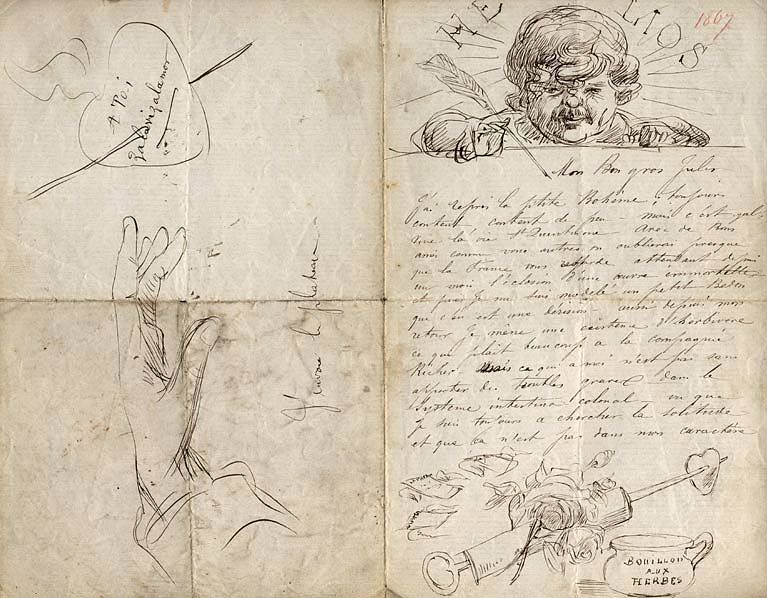 A Toi
Zaladrizalamor
J'envoie la
HELIOS
1867
Mon Bon gros Jules
J'ai repris la ptite Bohême, toujours
content content de peu - mais c'est gal
que la vie St Quentinoise Avec de Bons
amis comme vous autres, on oublierai presque
que la France vous regarde attendant depuis
un mois l'eclosion d'une œuvre immortelle
et puis je me suis modelé un petit Bedon
que c'en est une dérision - aussi depuis mon
retour je mène une existence d'herbivore
ce qui plait beaucoup à la compagnie
Richer. Mais ce qui a moi n'est pas sans
apporter des troubles graves dans le
système intestino colonal vu que
je suis toujours a chercher la solitude
et que ça n'est pas dans mon caractère
BOUILLON
AUX
HERBES